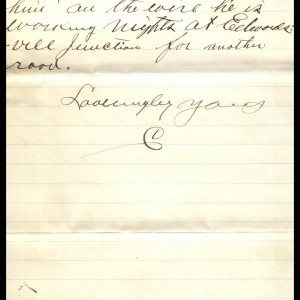 him on the wire he is
working nights at Edwards-
ville Junction for another
road.
Lovingly Yours
C